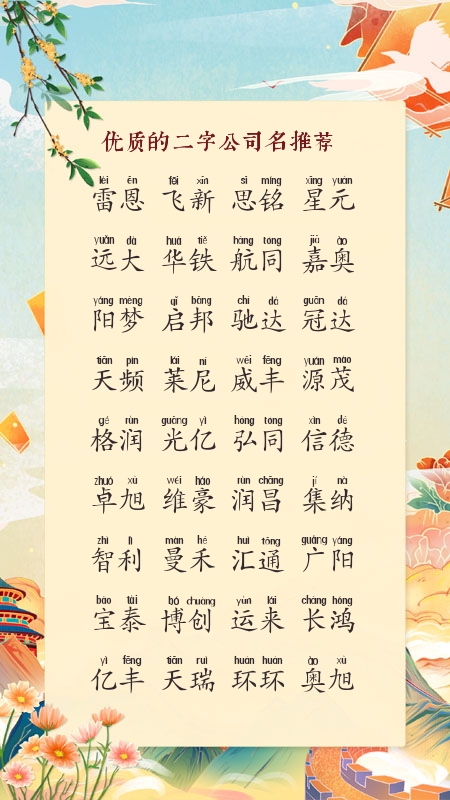 优质的二字公司名推荐
léi ēn fēi xīn sī míng xīng yuán
雷恩 飞新 思铭 星元
yuǎn dà huá tiě háng tóng jiā ào
远大 华铁 航同 嘉奥
yáng mèng qǐ bāng chí dá guān dá
阳梦 启邦 驰达 冠达
tiān pín lái ní wēi fēng yuán mào
天频 莱尼 威丰 源茂
gé rùn guāng yì hóng tóng xìn dé
格润 光亿 弘同 信德
zhuó xù wéi háo rùn chāng jí nà
卓旭 维豪 润昌 集纳
zhì lì màn hé huì tōng guǎng yáng
智利 曼禾 汇通 广阳
bǎo tài bó chuàng yùn lái cháng hóng
宝泰 博创 运来 长鸿
yì fēng tiān ruì huán huán ào xù
亿丰 天瑞 环环 奥旭